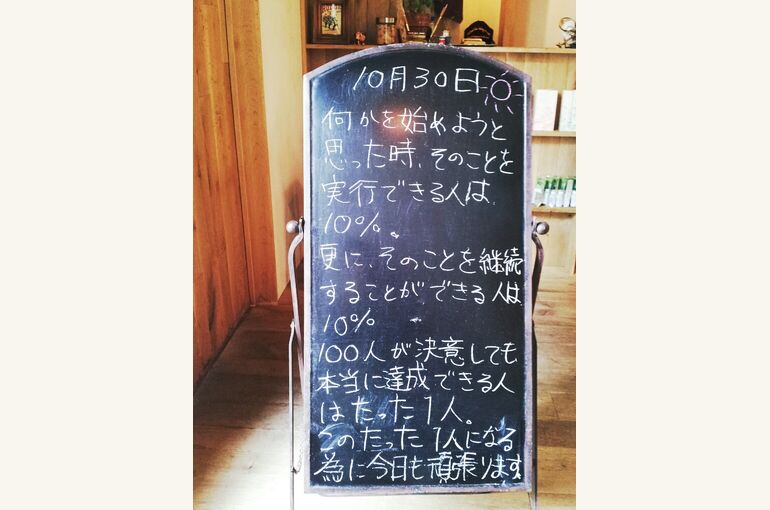 10月30日
何かを始めようと
思った時、そのことを
実行できる人は
10%。
更に、そのことを継続
することができる人は
10%
100人が決意しても
本当に達成できる人
はたった1人。
このたった1人になる
為に今日も頑張ります